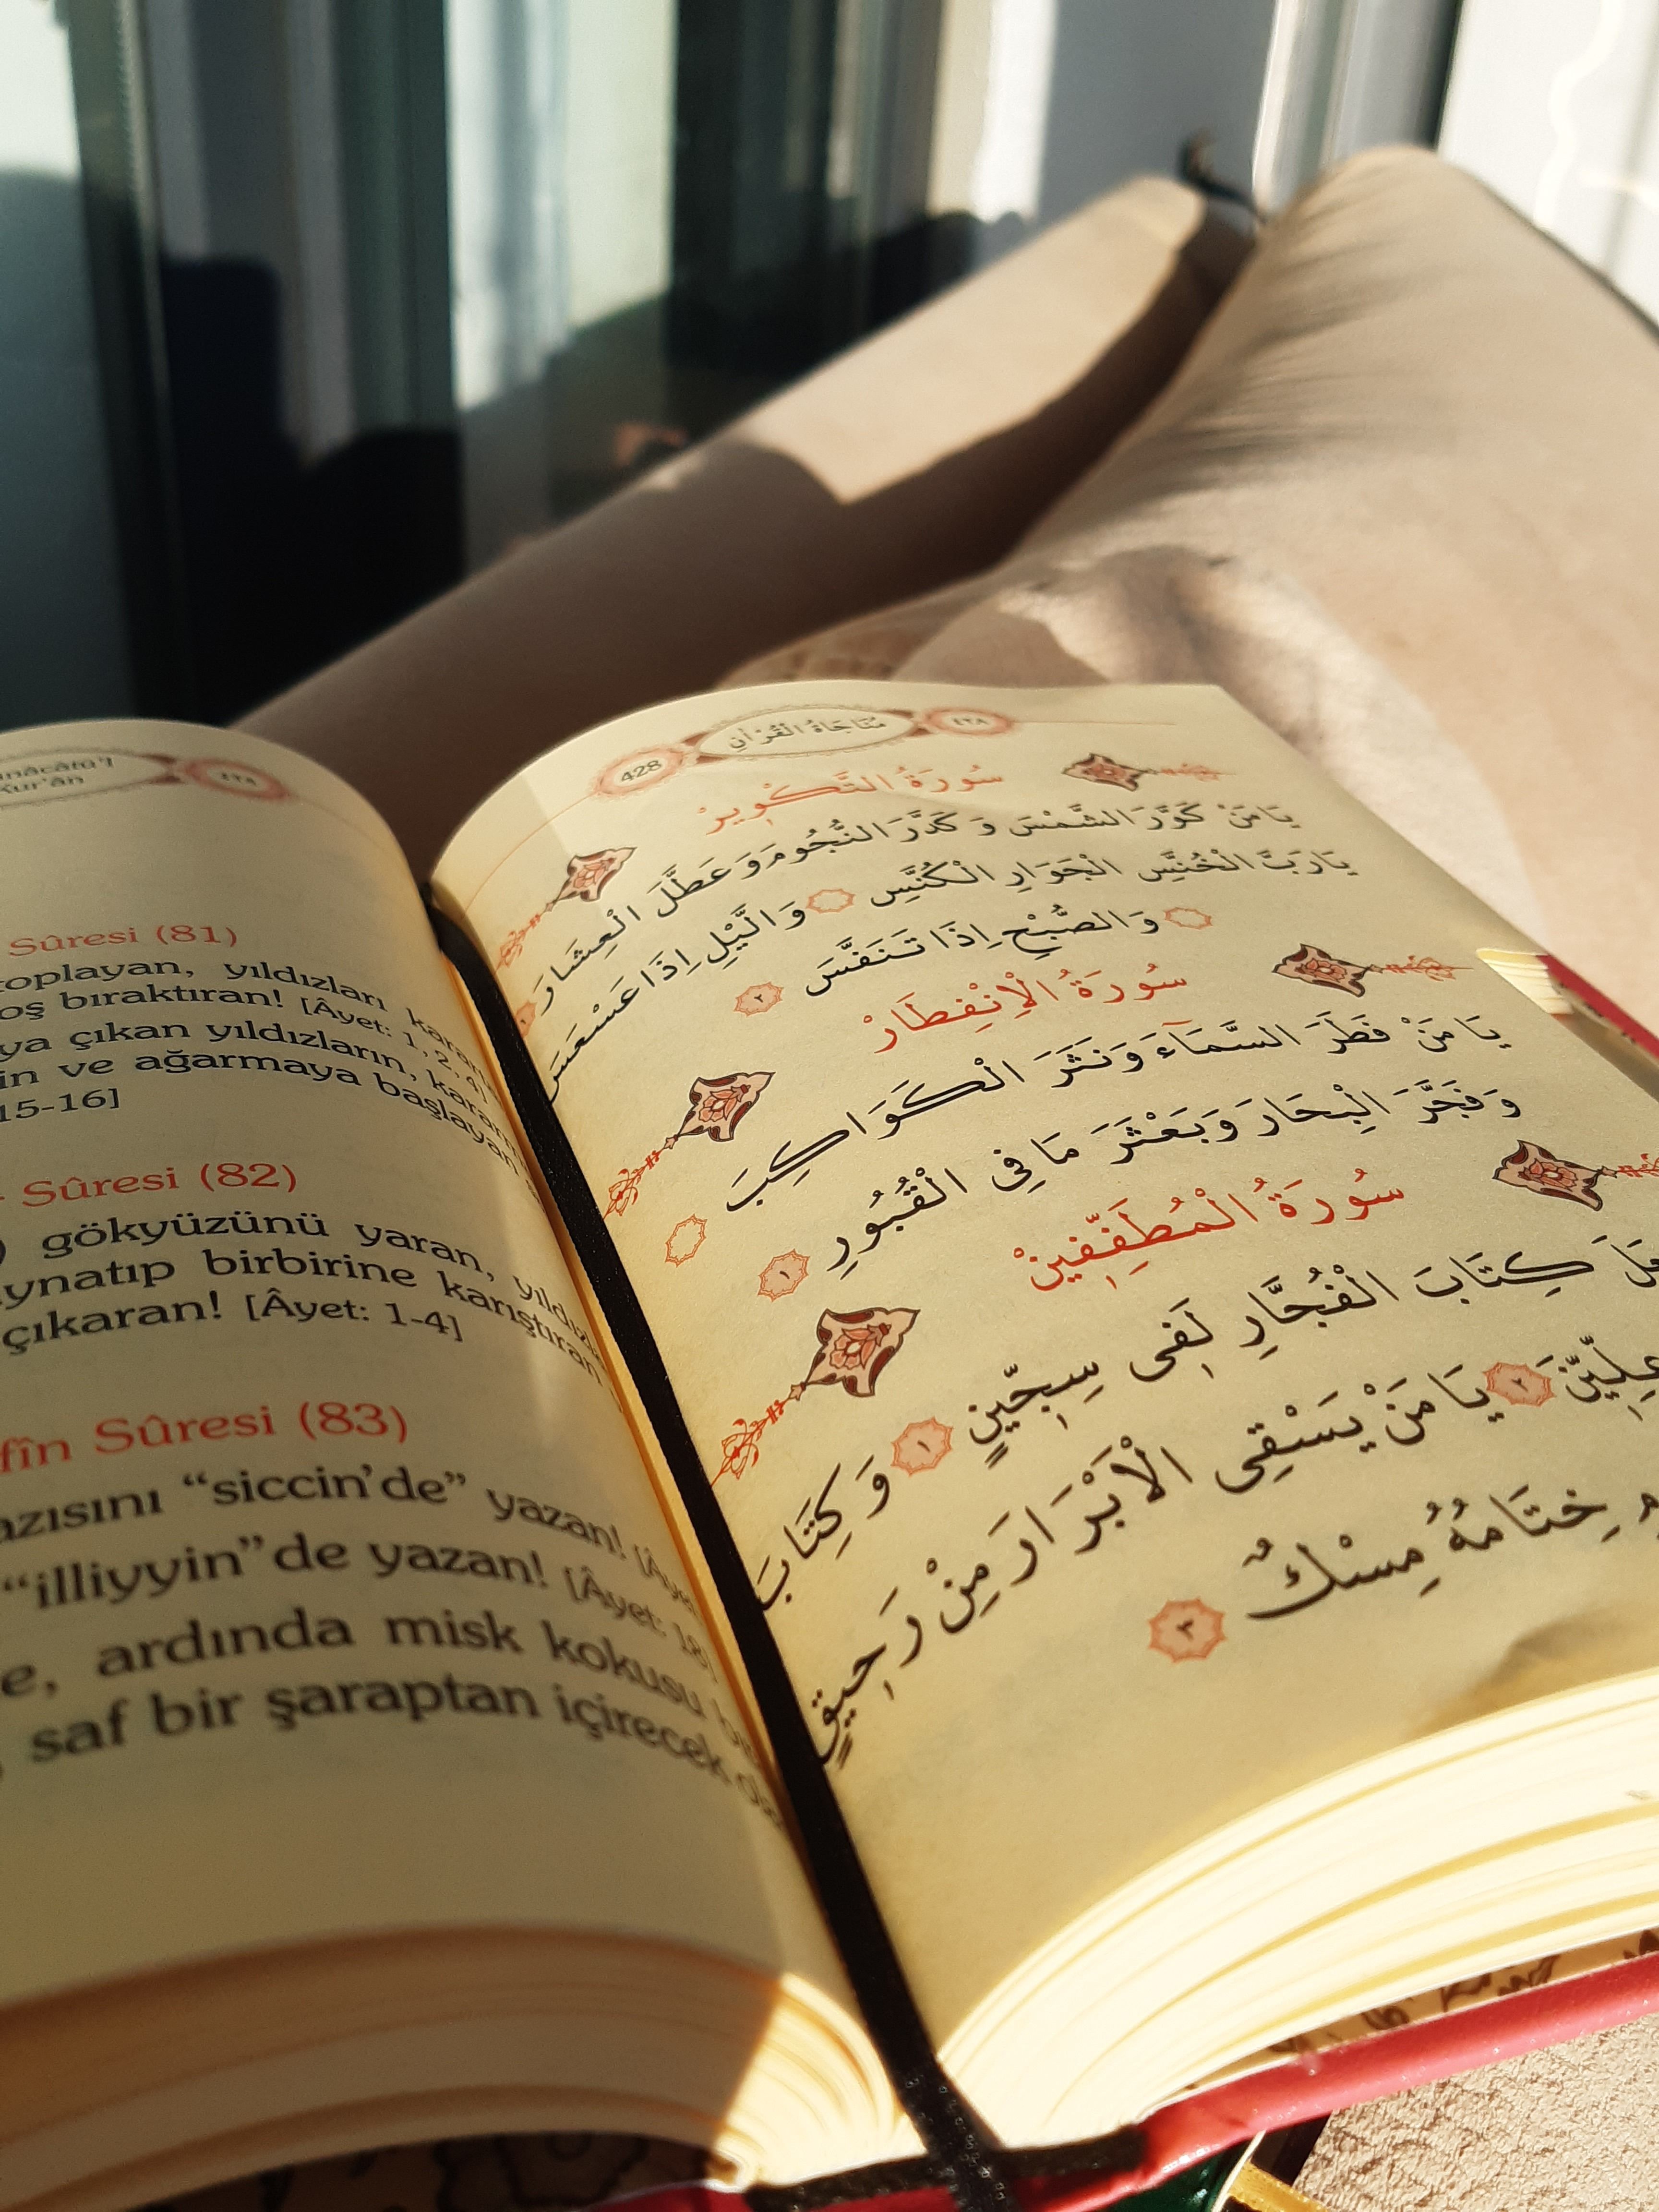 nâcâtü'l
Kur'ân
٤٢٩
Sûresi (81)
toplayan, yıldızları
oş bıraktıran! [Âyet: 1, 2, 4]
ya çıkan yıldızların,
in ve ağarmaya başlayan
15-16]
Sûresi (82)
gökyüzünü yaran,
aynatıp birbirine karıştıran
çıkaran! [Âyet: 1-4]
fîn Sûresi (83)
azısını “siccin’de” yazan!
“illiyyin”de yazan! [Âyet: 18]
e, ardında misk kokusu
saf bir şaraptan içirecek
428 مُنَاجَاةُ الْقُرْاٰنِ ٤٢٨
سُورَةُ التَّكْوِيرْ
يَا مَنْ كَوَّرَ الشَّمْسَ وَ كَدَّرَ النُّجُومَ وَ عَطَّلَ الْعِشَارَ ١
يَا رَبَّ الْخُنَّسِ الْجَوَارِ الْكُنَّسِ وَالَّيْلِ اِذَا عَسْعَسَ
وَالصُّبْحِ اِذَا تَنَفَّسَ ٢
سُورَةُ الْاِنْفِطَارْ
يَا مَنْ فَطَرَ السَّمَٓاءَ وَنَثَرَ الْكَوَاكِبَ
وَفَجَّرَ الْبِحَارَ وَبَعْثَرَ مَا فِي الْقُبُورِ ١
سُورَةُ الْمُطَفِّفِينْ
كِتَابَ الْفُجَّارِ لَفِى سِجِّينٍ ١ وَ كِتَابَ
عِلِّيِّينَ ٢ يَا مَنْ يَسْقِى الْاَبْرَارَ مِنْ رَحِيقٍ
خِتَامُهُ مِسْكٌ ٣